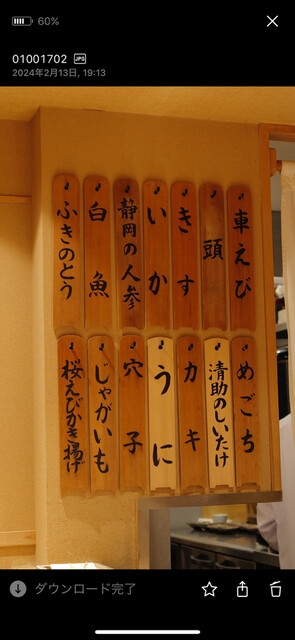 60%
01001702 JPG
2024年2月13日, 19:13
車えび
頭
きす
いか
静岡の人参
白魚
ふきのとう
めごち
清助のしいたけ
カキ
うに
穴子
じゃがいも
桜えびかき揚げ
ダウンロード完了